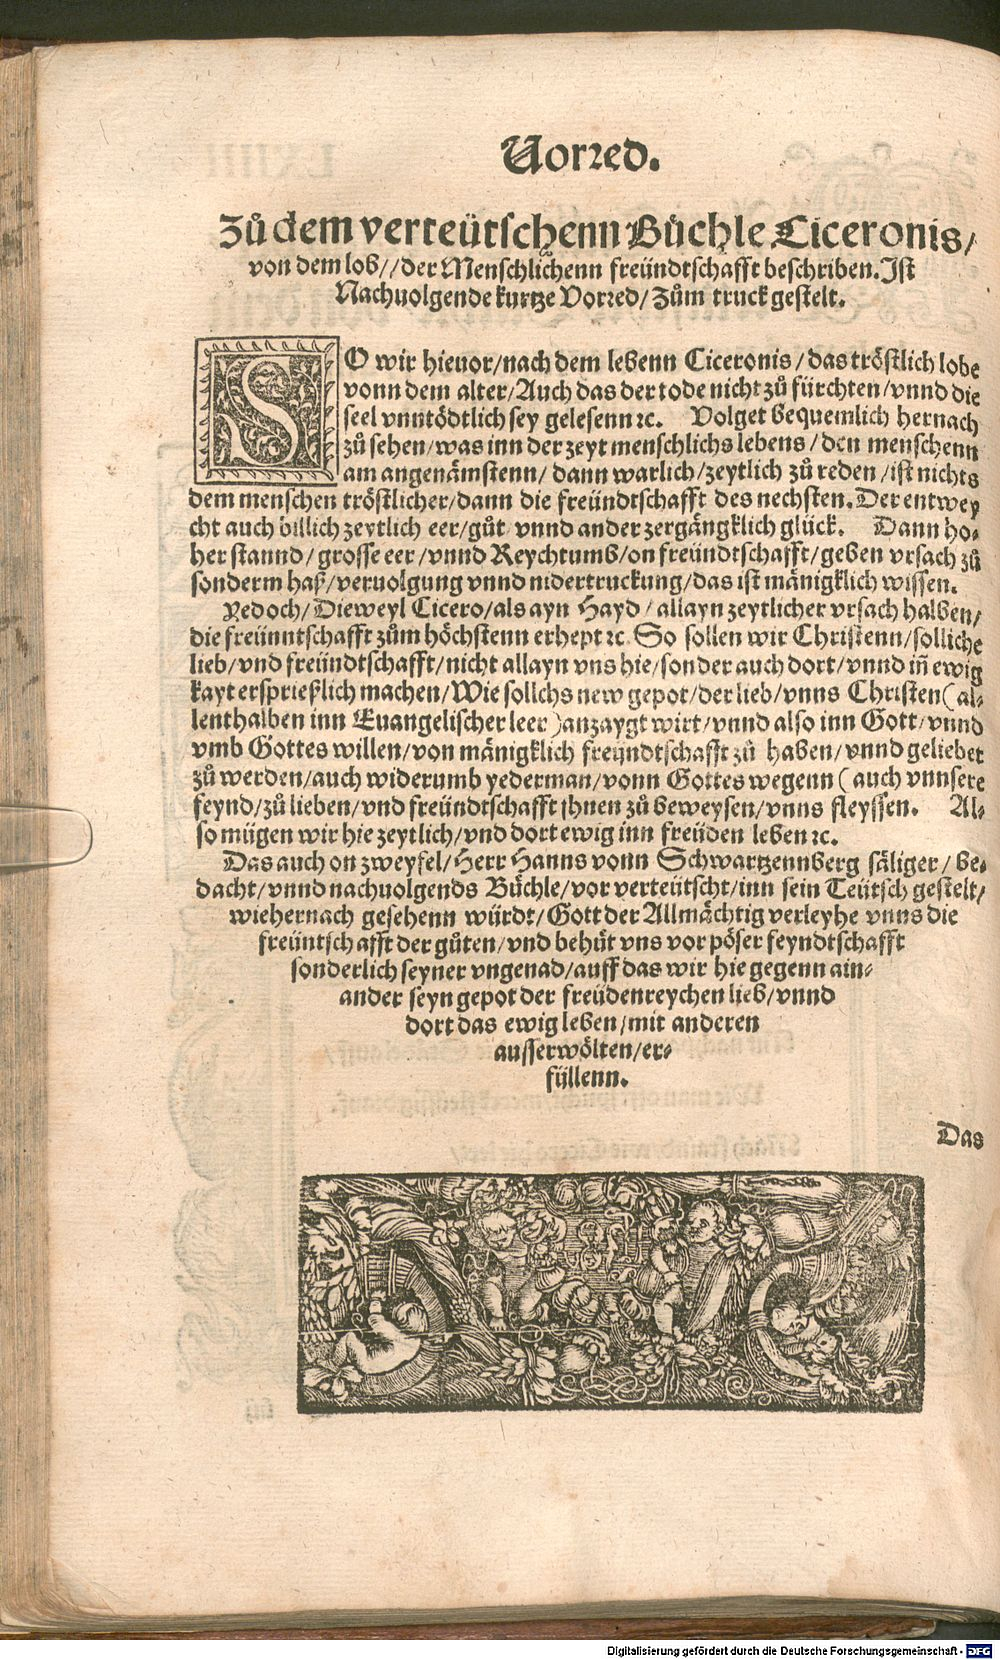 Vorred.
Zů dem verteütschenn Büchle Ciceronis/
von dem lob//der Menschlichenn freündtschafft beschriben. Ist
Nachuolgende kurtze Vorred/ Zům truck gestelt.
SO wir hieuor/nach dem lebenn Ciceronis/das tröstlich lobe
vonn dem alter/Auch das der tode nicht zů fürchten/vnnd die
seel vnntödtlich sey gelesenn ꝛc. Volget bequemlich hernach
zů sehen/was inn der zeyt menschlichs lebens/den menschenn
am angenämstenn/dann warlich/zeytlich zů reden/ist nichts
dem menschen tröstlicher/dann die freündtschafft des nechsten. Der entwey
cht auch billich zeytlich eer/gůt vnnd ander zergängklich glück. Dann ho⸗
her stannd/grosse eer/vnnd Reychtumb/on freündtschafft/geben vrsach zů
sonderm haß/veruolgung vnnd nidertruckung/das ist mänigklich wissen.
Yedoch/Dieweyl Cicero/als ayn Hayd/allayn zeytlicher vrsach halben/
die freünntschafft zům höchstenn erhept ꝛc. So sollen wir Christenn/solliche
lieb/vnd freündtschafft/nicht allayn vns hie/sonder auch dort/vnnd iñ ewig
kayt ersprießlich machen/Wie sollchs new gepot/der lieb/vnns Christen (al⸗
lenthalben inn Euangelischer leer) anzaygt wirt/vnnd also inn Gott/vnnd
vmb Gottes willen/von mänigklich freyndtschafft zů haben/vnnd geliebet
zů werden/auch widerumb yederman/vonn Gottes wegenn (auch vnnsere
feynd/zů lieben/vnd freündtschafft ihnen zů beweysen/vnns fleyssen. Al⸗
so mügen wir hie zeytlich/vnd dort ewig inn freüden leben ꝛc.
Das auch on zweyfel/Herr Hanns vonn Schwartzennberg säliger/be⸗
dacht/vnnd nachuolgends Büchle/vor verteütscht/inn sein Teütsch gestelt/
wie hernach gesehenn würdt/Gott der Allmächtig verleyhe vnns die
freüntschafft der gůten/vnd behüt vns vor pöser feyndtschafft
sonderlich seyner vngenad/auff das wir hie gegenn ain⸗
ander seyn gepot der freüdenreychen lieb/vnnd
dort das ewig leben/mit anderen
ausserwölten/er⸗
füllenn.
Das
Digitalisierung gefördert durch die Deutsche Forschungsgemeinschaft - DFG